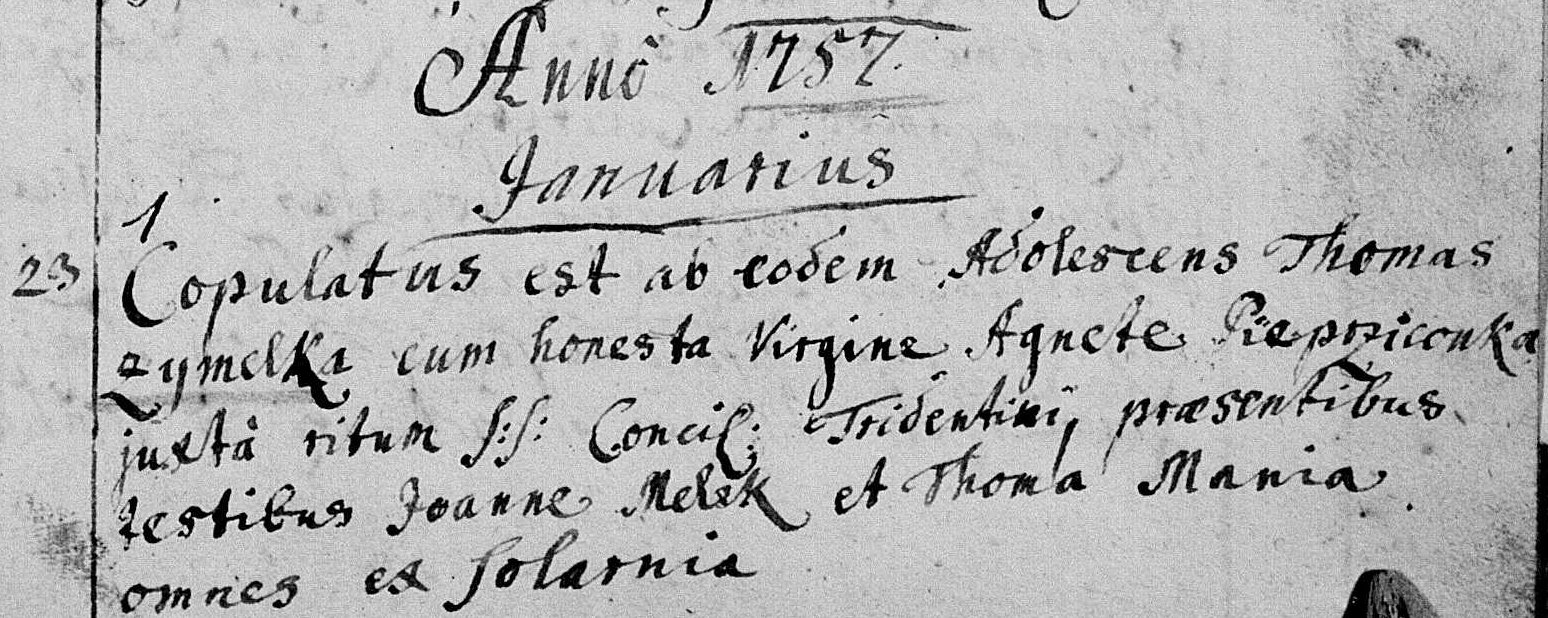 Annô 1757.
Januariûs
1
23 Copulatus est ab eodem Adolescens Thomas
Zymelka cum honesta Virgine Agnete Pieprziconka
juxtâ ritum S:S: Concil: Tridentini, præsentibus
testibus Joanne Melek et Thoma Mania
omnes ex Solarnia